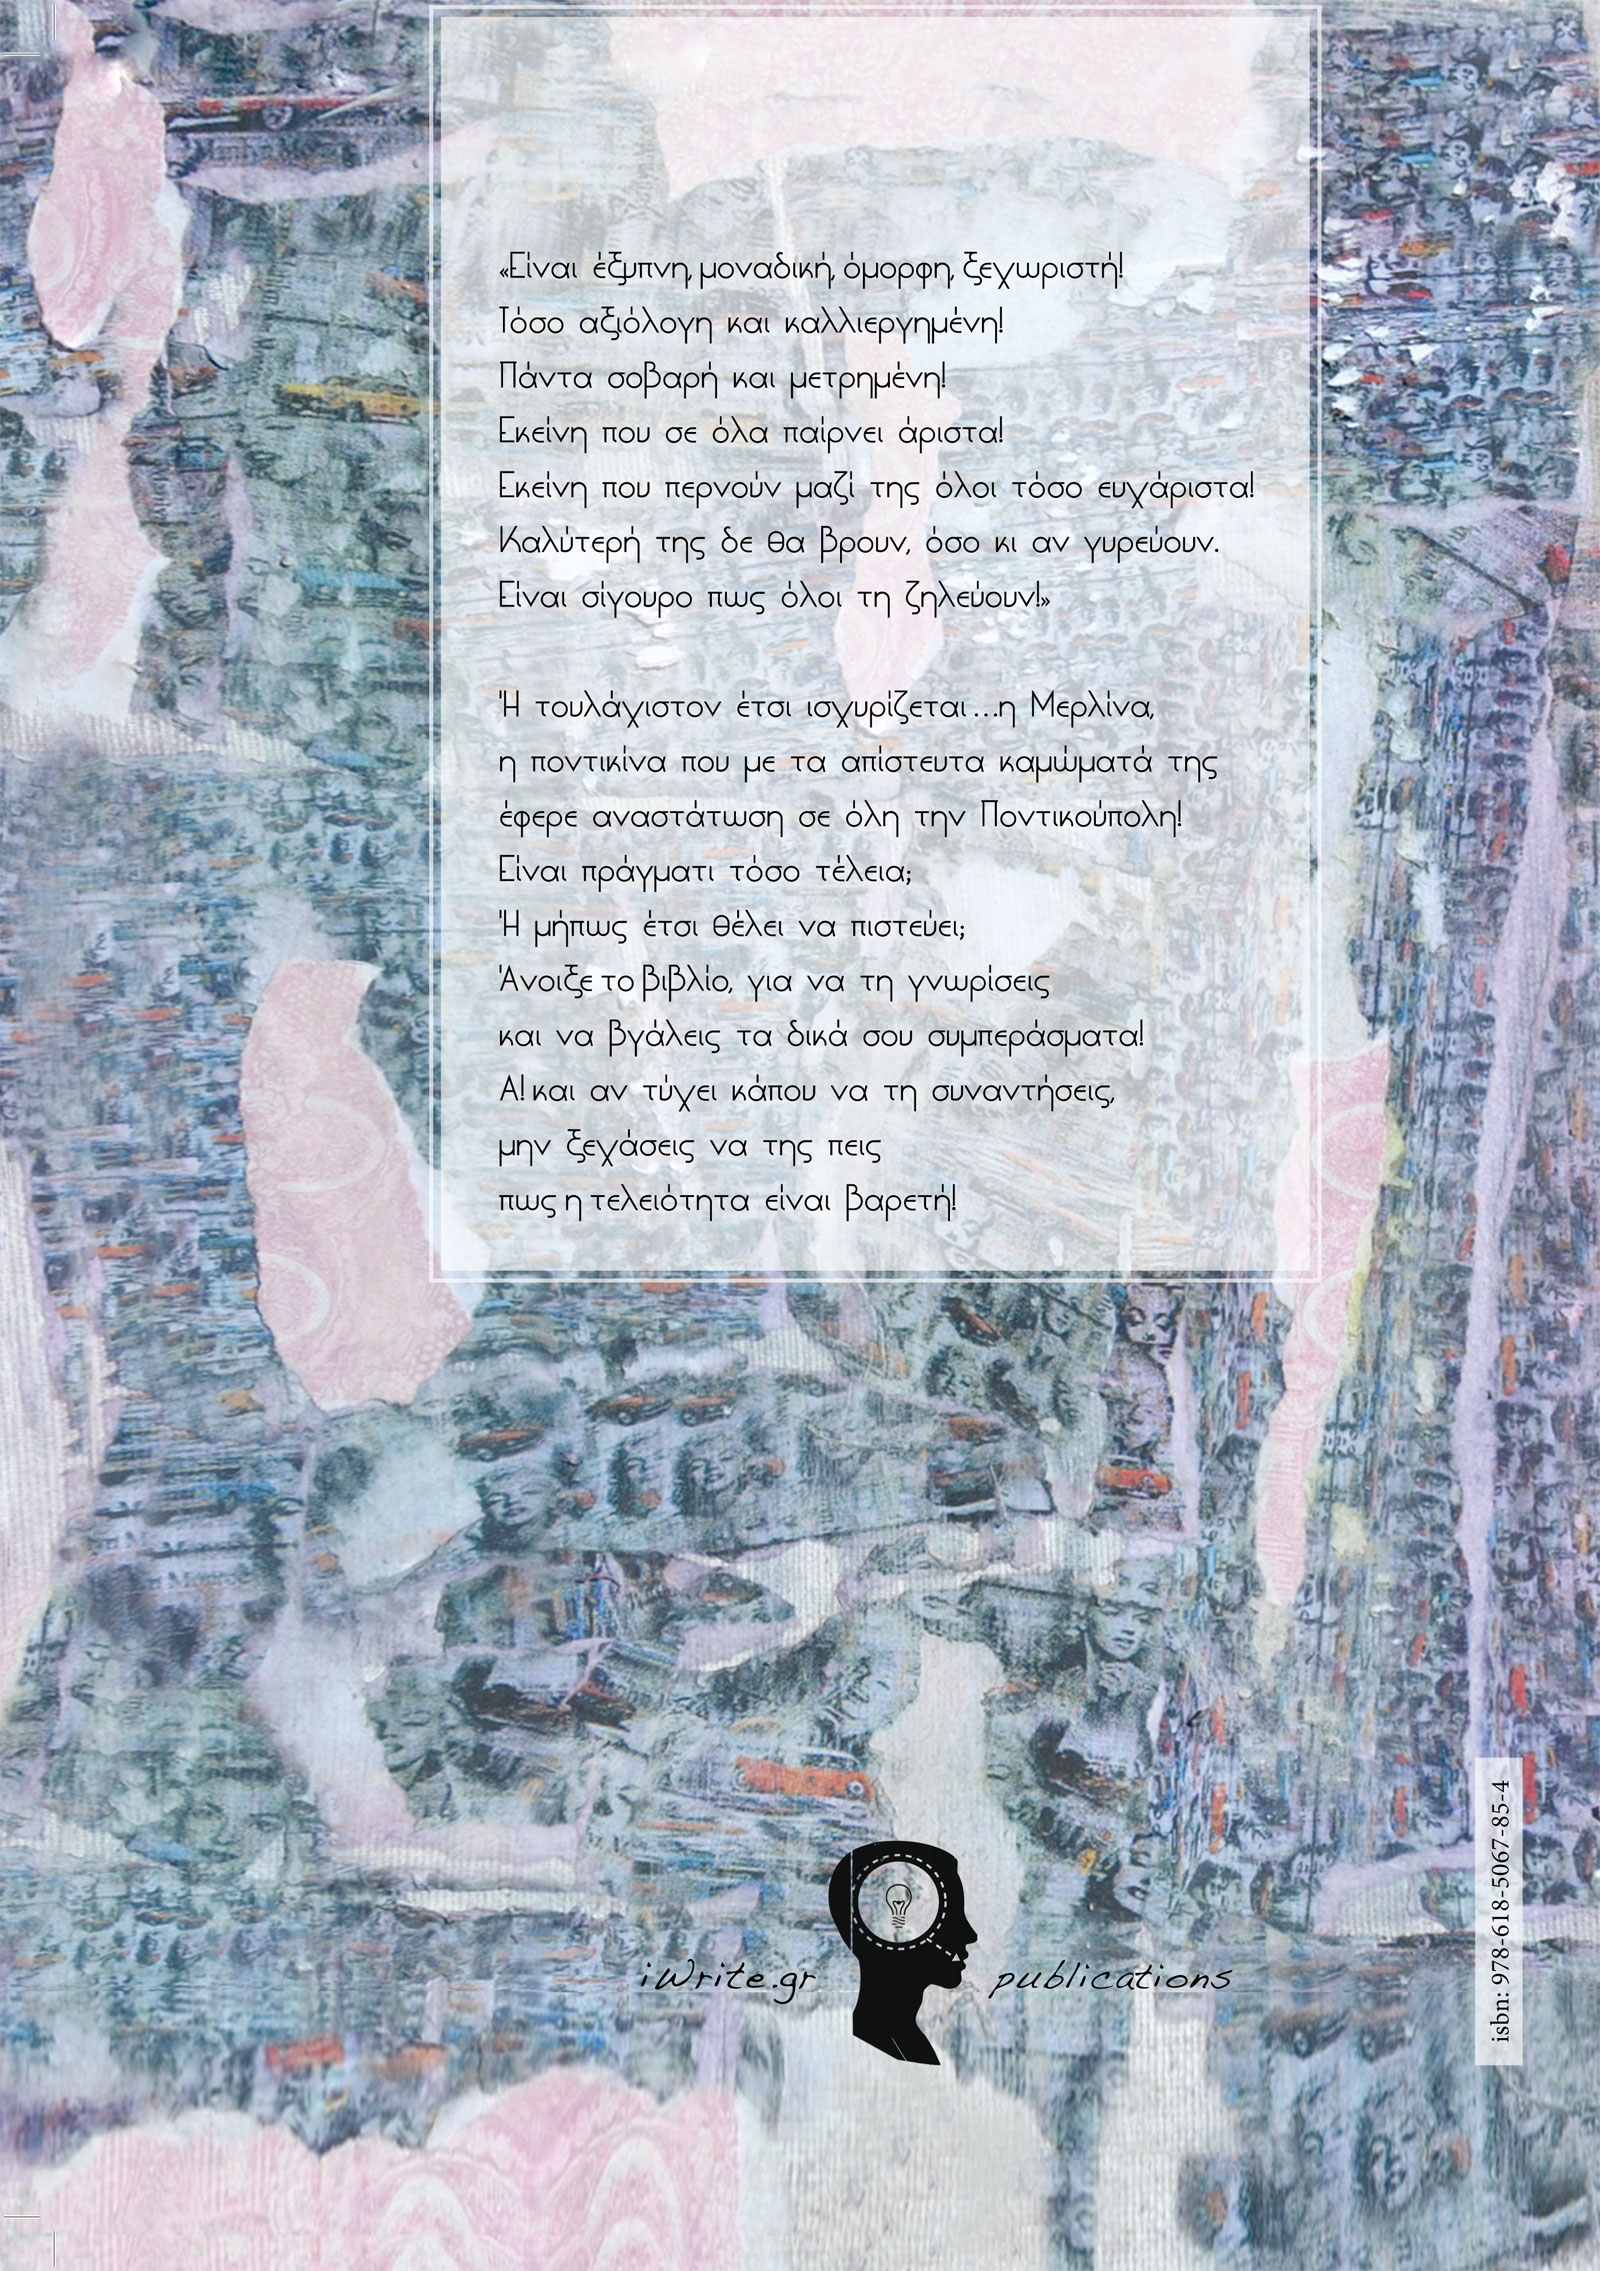 «Είναι έξυπνη, μοναδική, όμορφη, ξεχωριστή!
Τόσο αξιόλογη και καλλιεργημένη!
Πάντα σοβαρή και μετρημένη!
Εκείνη που σε όλα παίρνει άριστα!
Εκείνη που περνούν μαζί της όλοι τόσο ευχάριστα!
Καλύτερή της δε θα βρουν, όσο κι αν γυρεύουν.
Είναι σίγουρο πως όλοι τη ζηλεύουν!»
Ή τουλάχιστον έτσι ισχυρίζεται ...η Μερλίνα,
η ποντικίνα που με τα απίστευτα καμώματά της
έφερε αναστάτωση σε όλη την Ποντικούπολη!
Είναι πράγματι τόσο τέλεια;
Ή μήπως έτσι θέλει να πιστεύει;
Άνοιξε το βιβλίο, για να τη γνωρίσεις
και να βγάλεις τα δικά σου συμπεράσματα!
Α! και αν τύχει κάπου να τη συναντήσεις,
μην ξεχάσεις να της πεις
πως η τελειότητα είναι βαρετή!
iWrite.gr publications
isbn: 978-618-5067-85-4